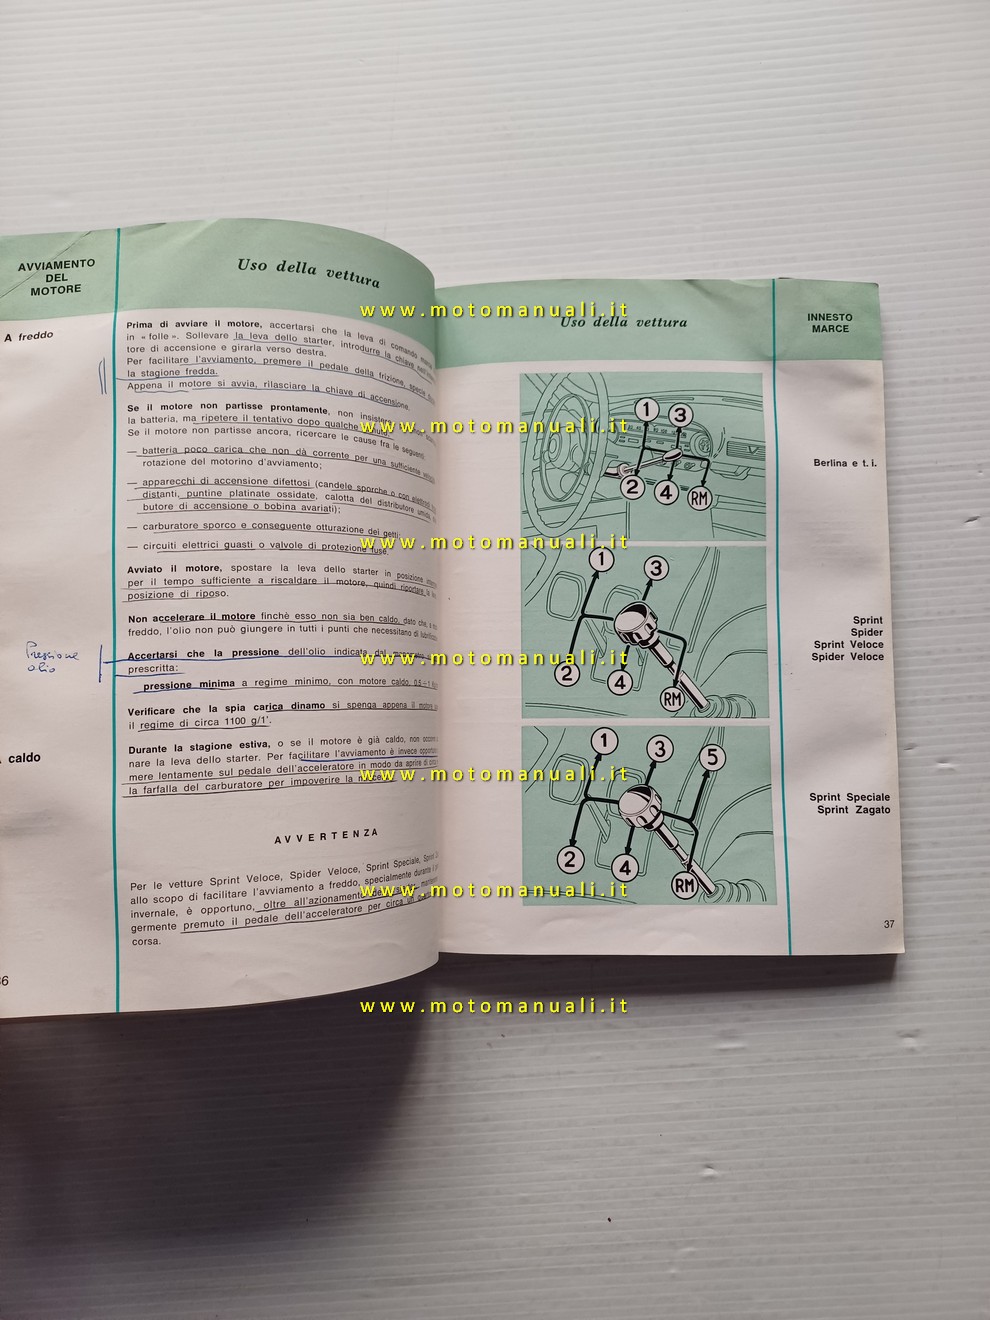 AVVIAMENTO
DEL
MOTORE
Uso della vettura
A freddo
Prima di avviare il motore, accertarsi che la leva di comando
in « folle ». Sollevare la leva dello starter, introdurre la chiave
tore di accensione e girarla verso destra.
Per facilitare l'avviamento, premere il pedale della frizione,
la stagione fredda.
Appena il motore si avvia, rilasciare la chiave di accensione.
Se il motore non partisse prontamente, non
la batteria, ma ripetere il tentativo dopo qualche
Se il motore non partisse ancora, ricercare le cause fra le seguenti:
— batteria poco carica che non dà corrente per una sufficiente
rotazione del motorino d'avviamento;
— apparecchi di accensione difettosi (candele sporche o con
distanti, puntine platinate ossidate, calotta del distributore
butore di accensione o bobina avariati);
— carburatore sporco e conseguente otturazione dei getti;
— circuiti elettrici guasti o valvole di protezione fuse.
Avviato il motore, spostare la leva dello starter in posizione
per il tempo sufficiente a riscaldare il motore, quindi riportare
posizione di riposo.
Non accelerare il motore finchè esso non sia ben caldo, dato che,
freddo, l'olio non può giungere in tutti i punti che necessitano di
Pressione
olio
Accertarsi che la pressione dell'olio indicata dal
prescritta:
pressione minima a regime minimo, con motore caldo, 0,5÷1
Verificare che la spia carica dinamo si spenga appena il motore
il regime di circa 1100 g/1'.
caldo
Durante la stagione estiva, o se il motore è già caldo, non
nare la leva dello starter. Per facilitare l'avviamento è invece
mere lentamente sul pedale dell'acceleratore in modo da aprire
la farfalla del carburatore per impoverire la
AVVERTENZA
Per le vetture Sprint Veloce, Spider Veloce, Sprint Speciale,
allo scopo di facilitare l'avviamento a freddo, specialmente durante
invernale, è opportuno, oltre all'azionamento
germente premuto il pedale dell'acceleratore per circa un
corsa.
36
Uso della vettura
INNESTO
MARCE
1 3
2 4 RM
Berlina e t. i.
1 3
2 4 RM
Sprint
Spider
Sprint Veloce
Spider Veloce
1 3 5
2 4 RM
Sprint Speciale
Sprint Zagato
37
www.motomanuali.it
www.motomanuali.it
www.motomanuali.it
www.motomanuali.it
www.motomanuali.it
www.motomanuali.it
www.motomanuali.it